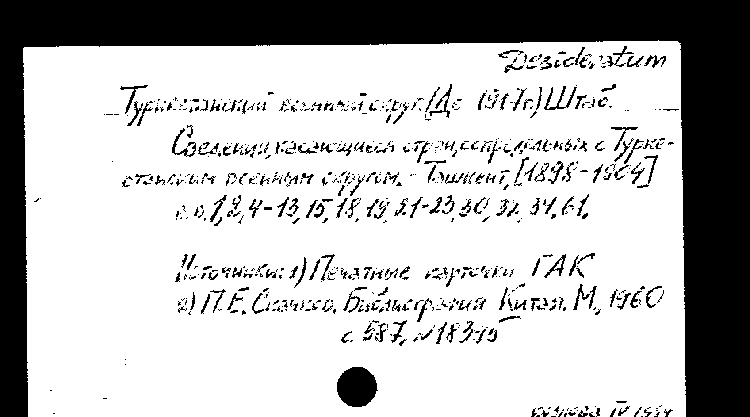 Desideratum
Туркестанский военный округ. (До 1917 г.) Штаб.
Сведения, касающиеся стран, сопредельных с Турке-
станским военным округом. - Ташкент, [1898-1904]
1, 2, 4-13, 15, 18, 19, 21-23, 30, 32, 34, 61.
Источники: 1) Печатные карточки ГАК
2) П.Е. Скачков. Библиография Китая. М., 1960
с. 587, №